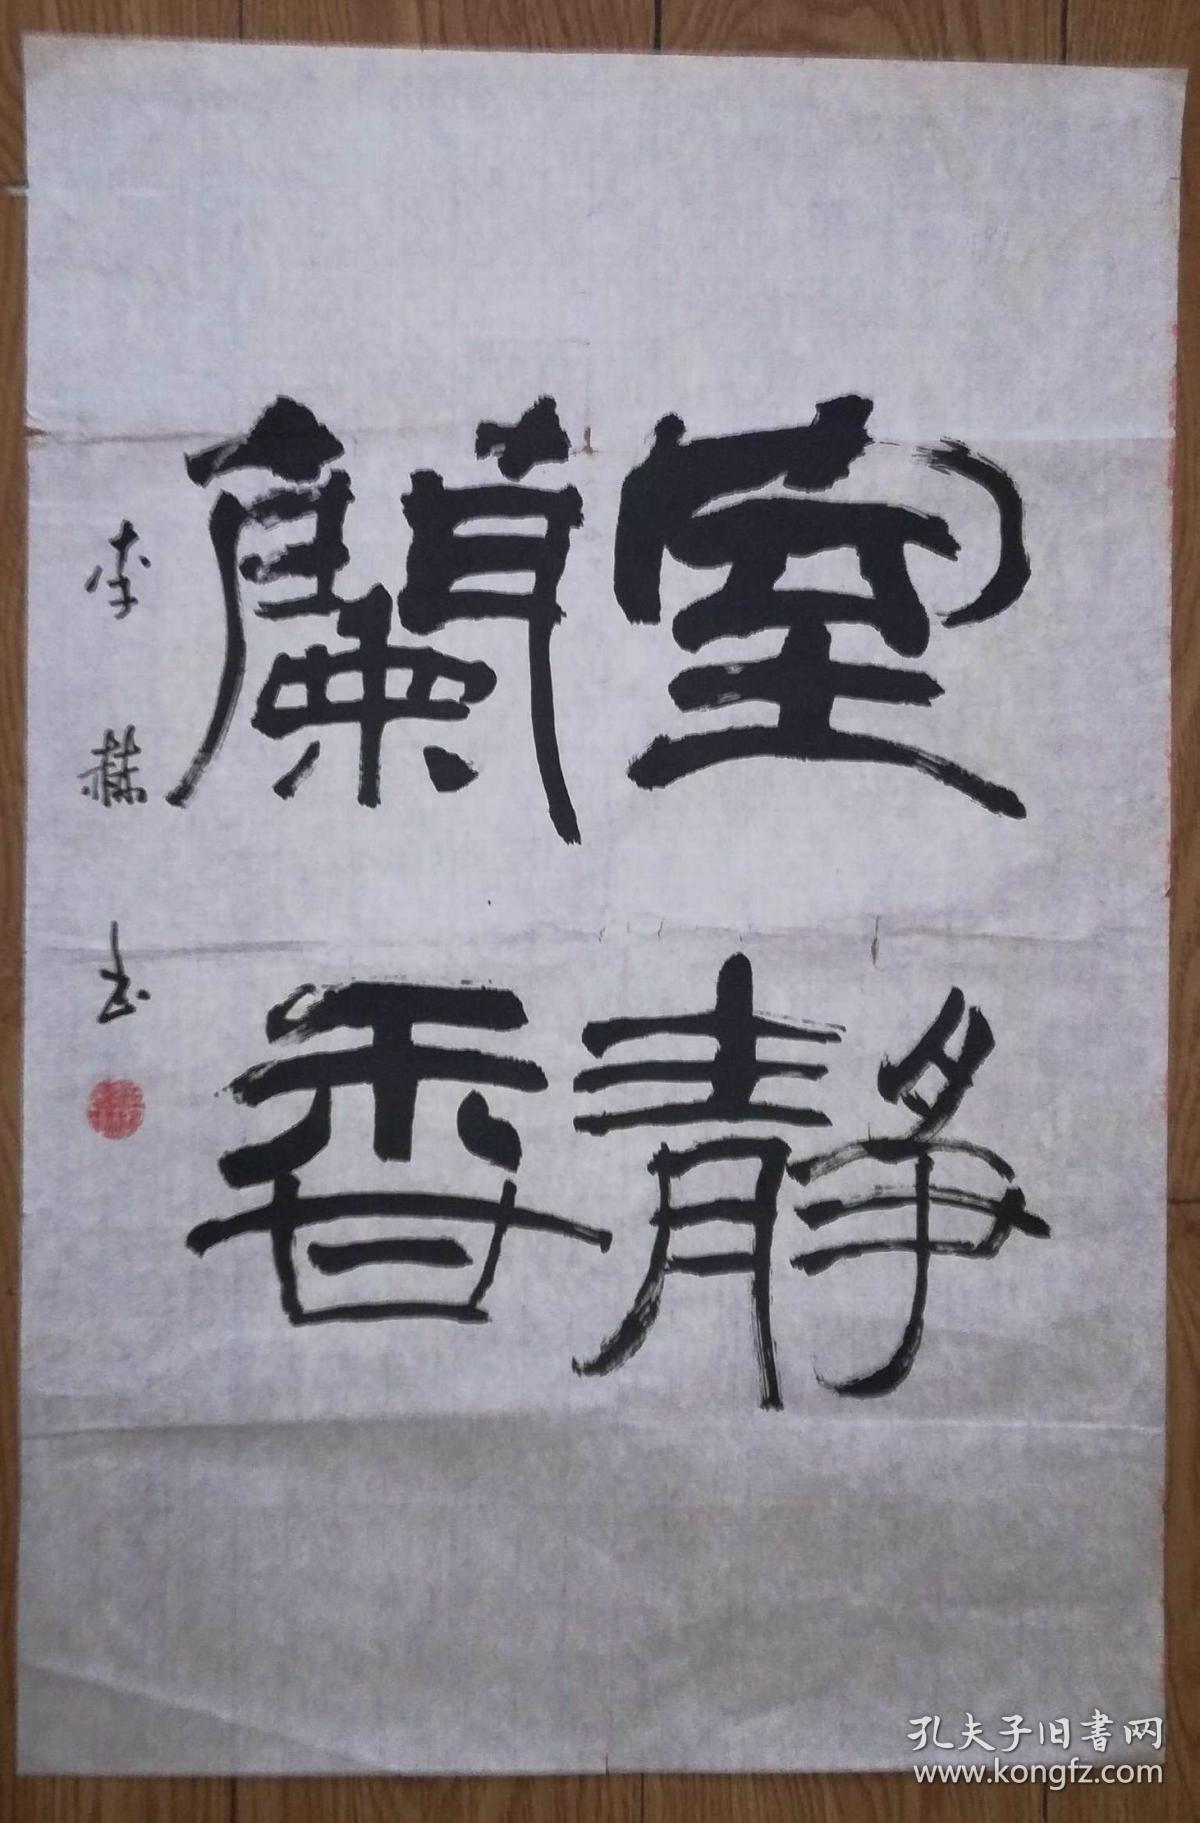 室静
蘭香
李赫书
孔夫子旧書网
www.kongfz.com